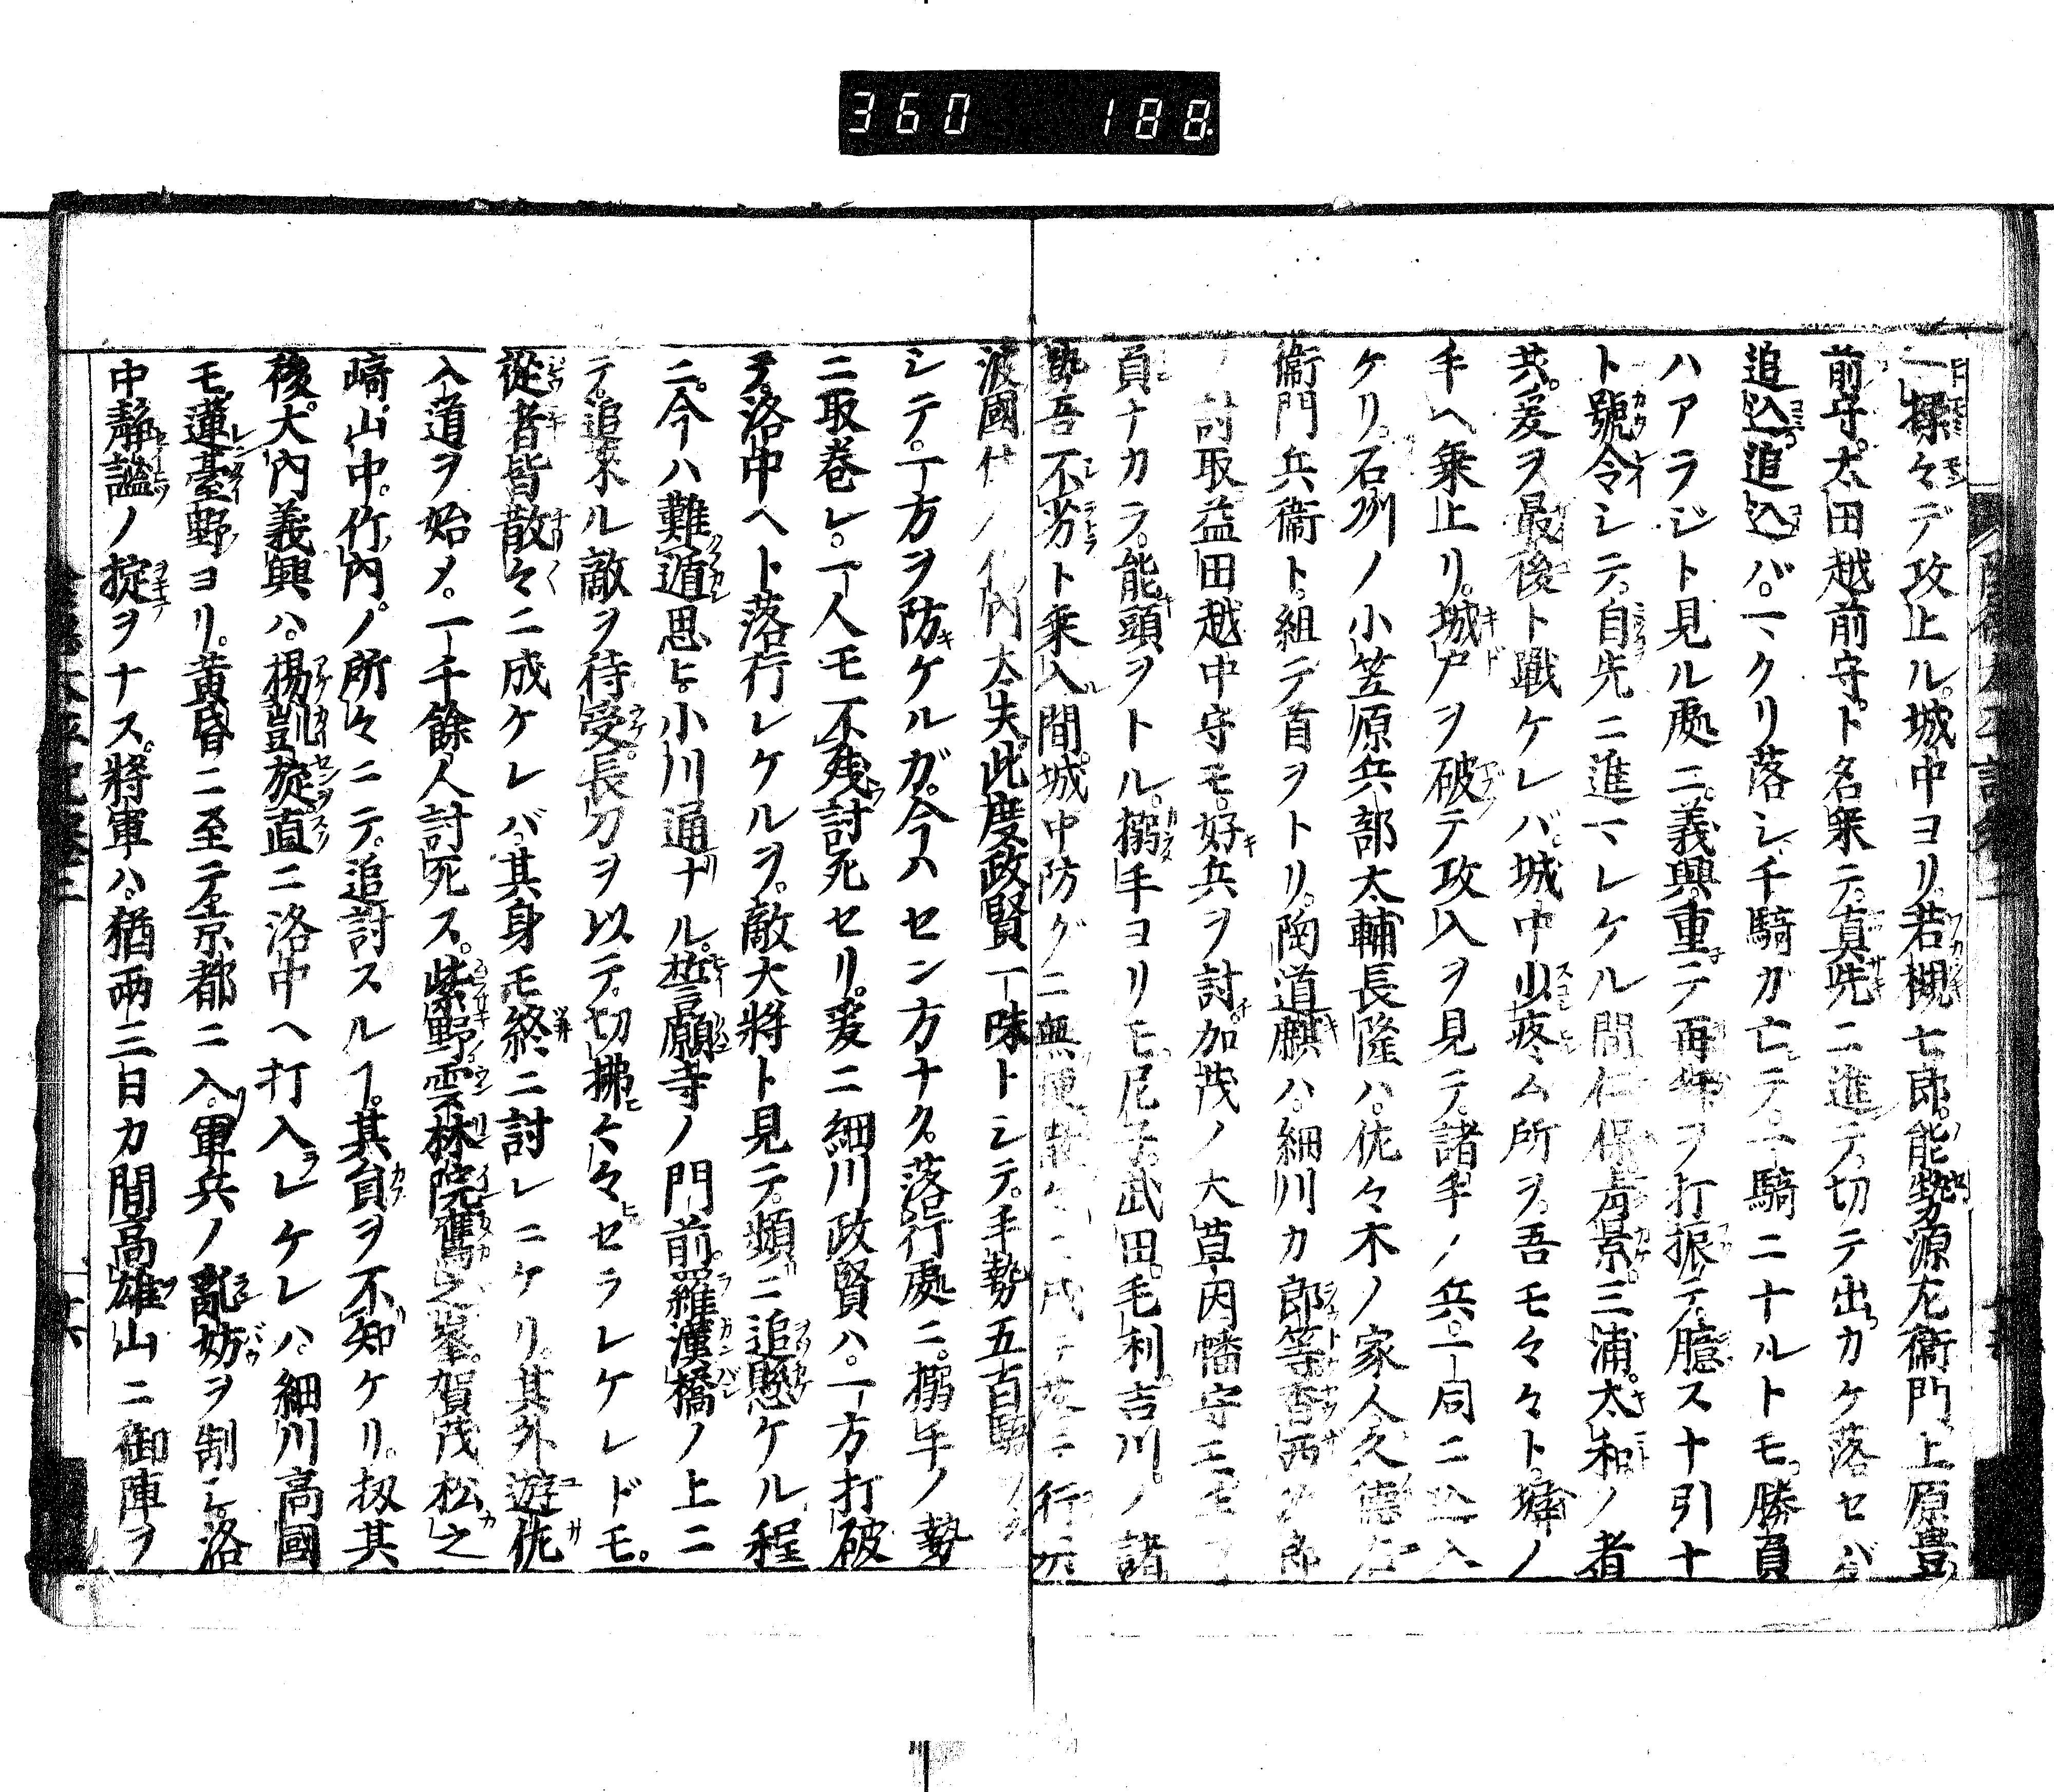 360 188
一揉々デ攻上ル。城中ヨリ。若槻七郎。能勢源左衞門上原豊
前守。太田越前守。ト名乘テ。真先ニ進テ。切テ出カケ落セバ
追込。追込バ。一マクリ落シ千騎ガ亡テ。一騎ニナルトモ。勝負
ハアラジト見ル處ニ。義興重テ再拜ヲ打振テ。臆スナ引ナ
ト號令シテ。自先ニ進マレケル間仁保 三浦。太和ノ者
共。爰ヲ最後ト戰ケレバ。城中少疼ム所ヲ。吾モ々々ト。塀ノ
手ヘ乗上リ。城戸ヲ破テ攻入ヲ見テ。諸手ノ兵。一同ニ込入
ケリ。石州ノ小笠原兵部太輔長隆ハ。佐々木ノ家人久德
衞門兵衞ト。組テ首ヲトリ。陶道麒ハ。細川カ郎等香西 郎
討取益田越中守モ。好兵ヲ討。加茂ノ大草因幡守モ
負ナカラ。能頭ヲトル。搦手ヨリモ。尼子。武田。毛利。吉川。ノ諸
勢吾不劣ト乗入間。城中防グニ無 成テ落 行
波國 ノ 内 太失。此度政賢一味トシテ。手勢五百騎
シテ。一方ヲ防ケルガ。今ハセン方ナク。落行處ニ。搦手ノ勢
ニ取巻レ。一人モ不残討死セリ。爰ニ細川政賢ハ。一方打破
テ。洛中ヘト落行レケルヲ。敵大將ト見テ。頻ニ追懸ケル程
ニ。今ハ難遁思ヒ。小川通ナル。誓願寺ノ門前。羅漢橋ノ上ニ
テ。追來ル敵ヲ待受。長刀ヲ以テ。切拂ヒ々々セラレケレドモ。
從者皆散々ニ成ケレバ。其身モ終ニ討レニケリ。其外遊佐
入道ヲ始メ。一千餘人討死ス。紫野雲林院鷹之峯。賀茂松之
﨑。山中。竹内。ノ所々ニテ。追討スルヿ。其員ヲ不知ケリ。扨其
後大内義興ハ。揚凱旋直ニ洛中ヘ打入レケレハ。細川高國
モ。蓮臺野ヨリ。黄昏ニ至テ。京都ニ入。軍兵ノ亂妨ヲ制シケ洛
中靜謐ノ掟ヲナス。將軍ハ。猶兩三日カ間高雄山ニ御陣ヲ